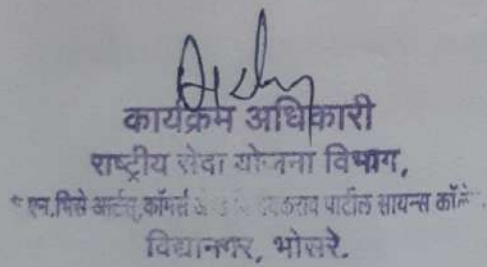 कार्यक्रम अधिकारी
राष्ट्रीय सेवा योजना विभाग,
एन.भिसे आर्टस्,कॉमर्स पाटील सायन्स कॉले
विद्यानगर, भोसरे.